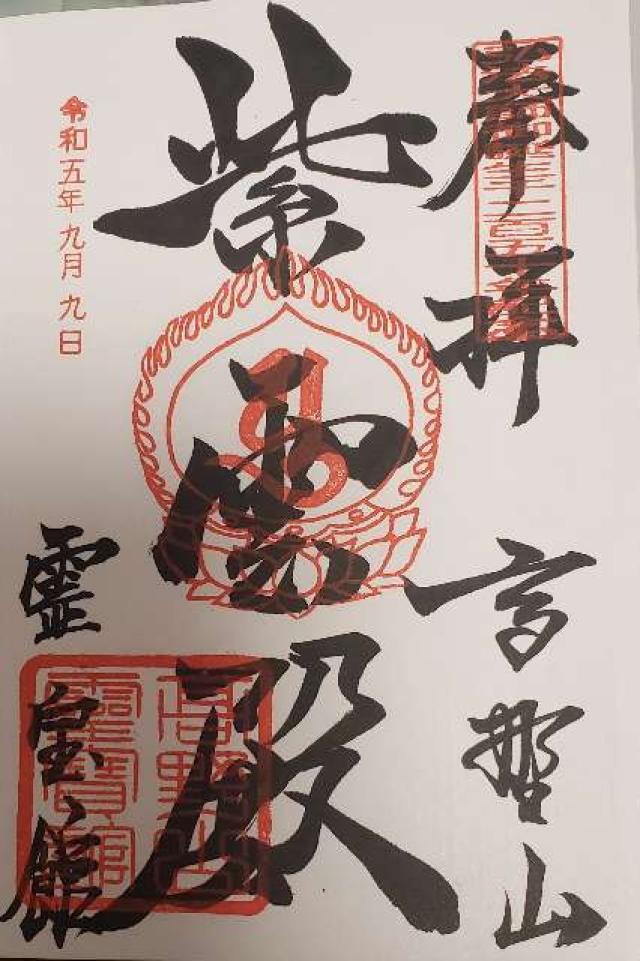 奉拝
高野山
紫雲殿
霊宝館
令和五年九月九日
高野山
霊寶館